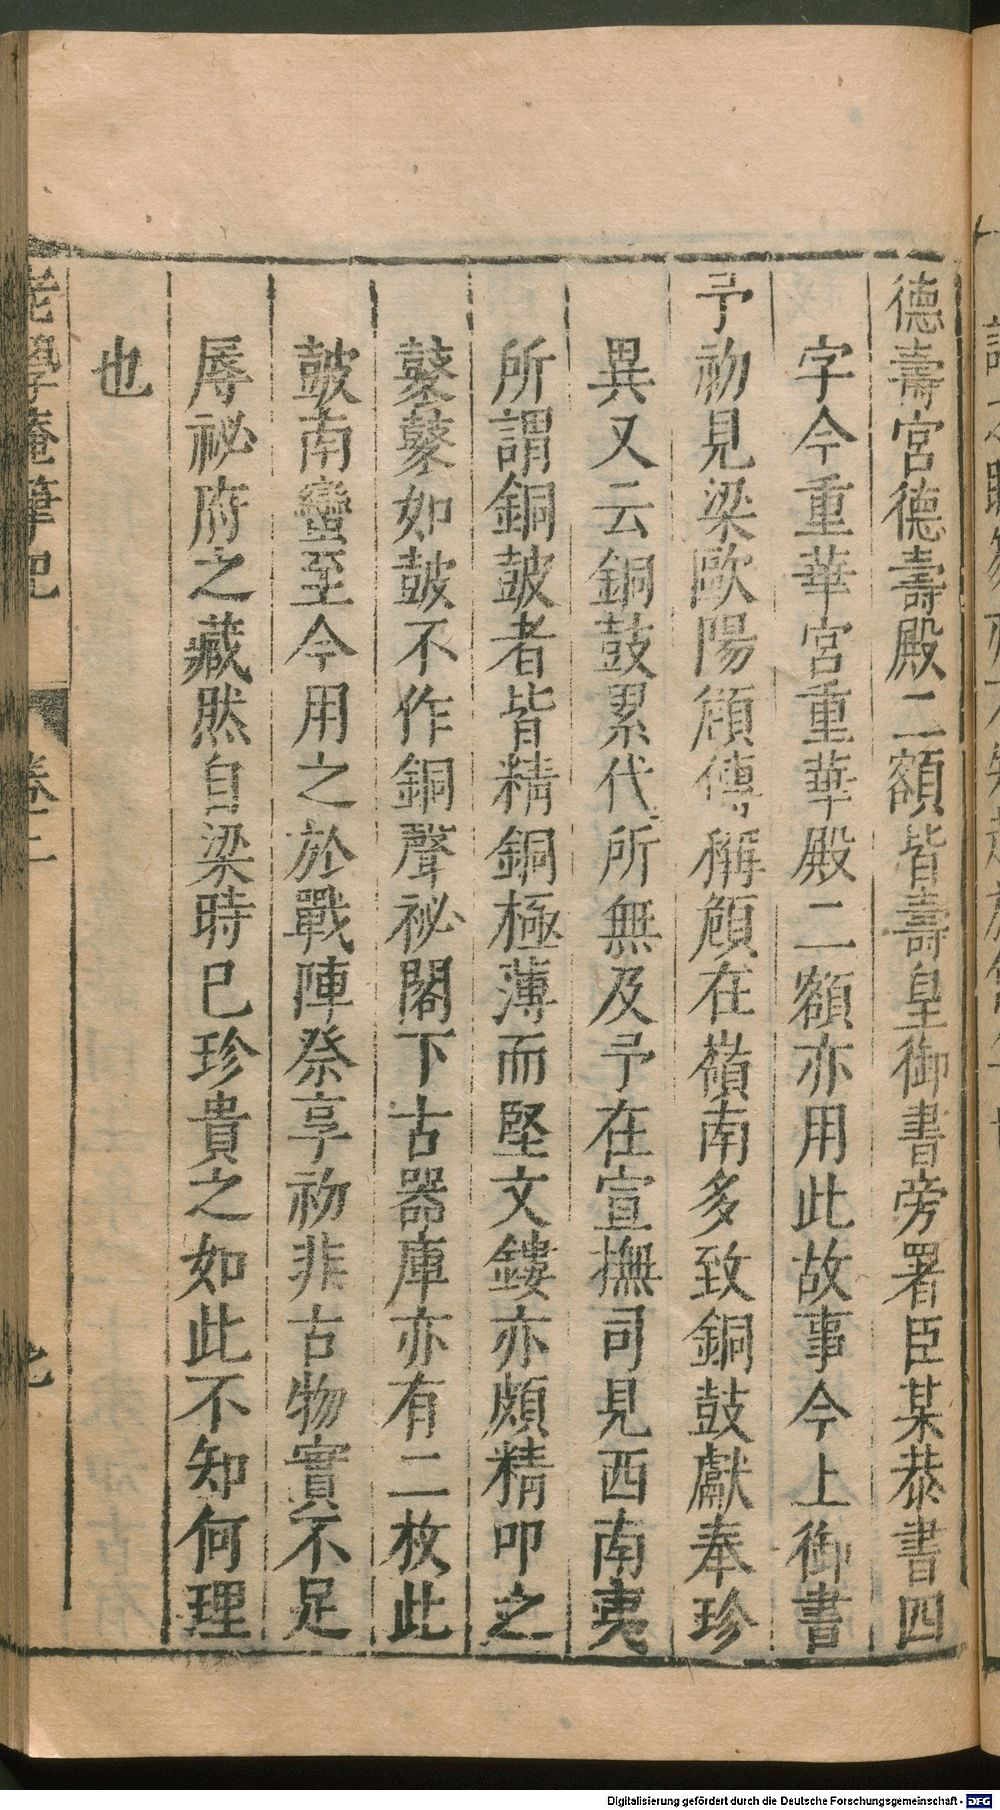 德壽宮德壽殿二額皆壽皇御書旁署臣某恭書四
字今重華宮重華殿二額亦用此故事今上御書
予初見梁歐陽頠傳稱頠在嶺南多致銅鼓獻奉珍
異又云銅鼓累代所無及予在宣撫司見西南夷
所謂銅皷者皆精銅極薄而堅文鏤亦頗精叩之
鼕鼕如皷不作銅聲祕閣下古器庫亦有二枚此
皷南蠻至今用之於戰陣祭享初非古物實不足
辱祕府之藏然自梁時已珍貴之如此不知何理
也
老學庵筆記 卷二
Digitalisierung gefördert durch die Deutsche Forschungsgemeinschaft - DFG